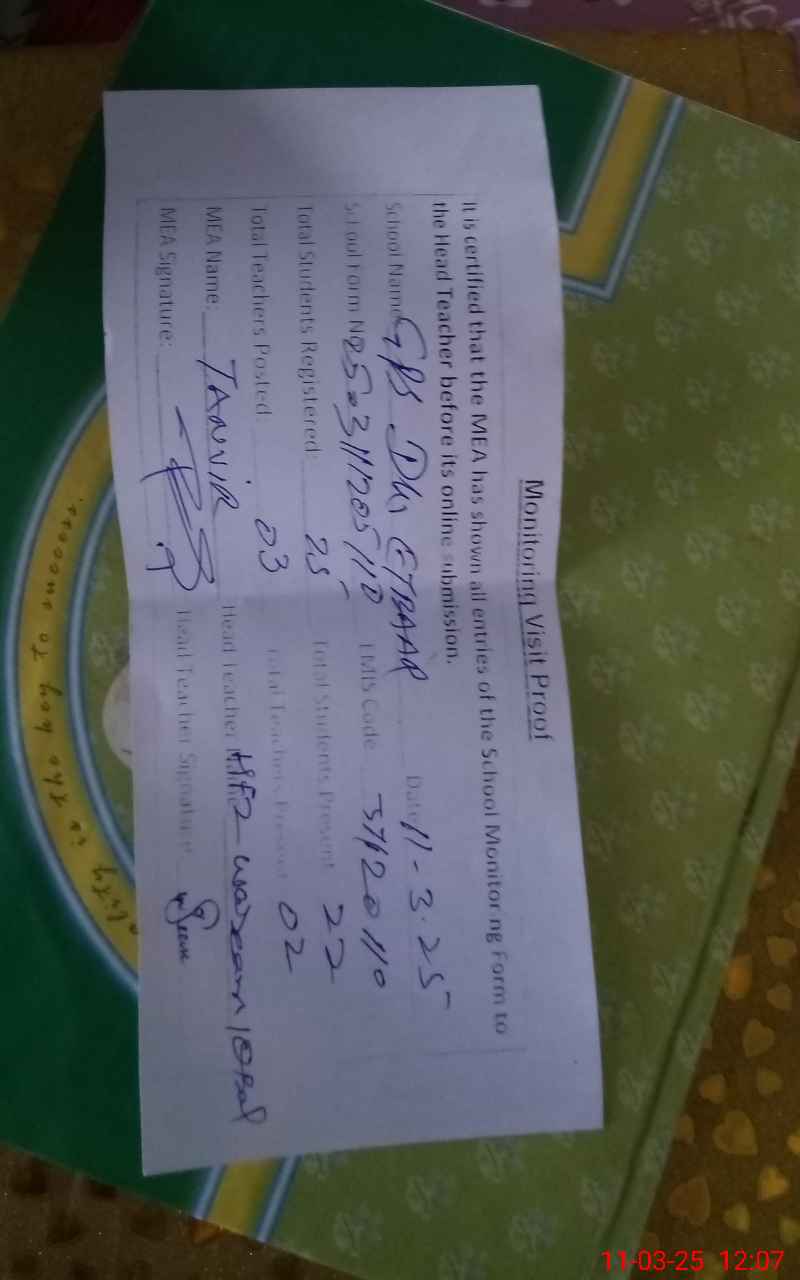 Monitoring Visit Proof
It is certified that the MEA has shown all entries of the School Monitoring Form to
the Head Teacher before its online submission.
School Name GPS Dhi ETBAAR Date 11-3-25
School Form No 2503111205110 EMIS Code 37120110
Total Students Registered: 25 Total Students Present 22
Total Teachers Posted: 03 Total Teachers Present 02
MEA Name: TANVIR Head Teacher
MEA Signature: Head Teacher Signature:
is the key to success.
11-03-25 12:07